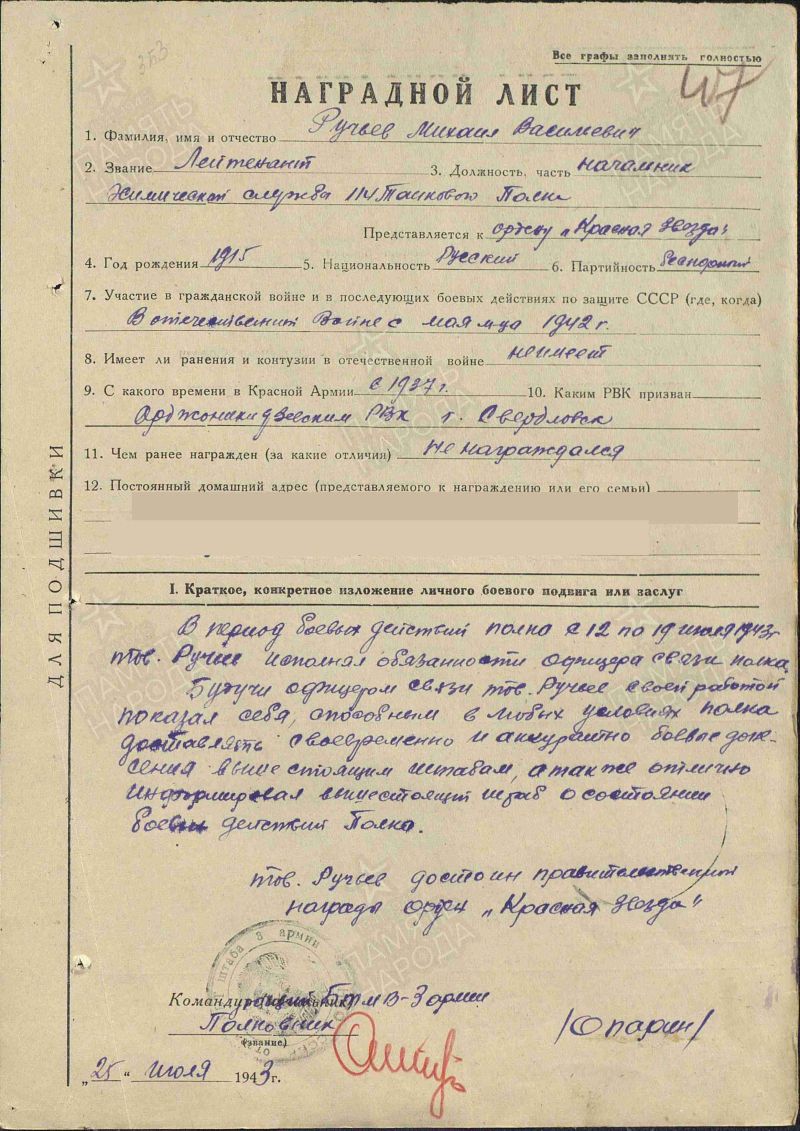 353
Все графы заполнять полностью
НАГРАДНОЙ ЛИСТ
1. Фамилия, имя и отчество Ручьев Михаил Васильевич
2. Звание Лейтенант 3. Должность, часть начальник
Химической служба 114 Танкового Полка
Представляется к ордену „Красная Звезда"
4. Год рождения 1915 5. Национальность Русский 6. Партийность
7. Участие в гражданской войне и в последующих боевых действиях по защите СССР (где, когда)
В отечественной Войне с мая м-ца 1942 г.
8. Имеет ли ранения и контузии в отечественной войне неимеет
9. С какого времени в Красной Армии с 1937 г. 10. Каким РВК призван
Орджоникидзевским РВК г. Свердловск
11. Чем ранее награжден (за какие отличия) не награждался
12. Постоянный домашний адрес (представляемого к награждению или его семьи)
ДЛЯ ПОДШИВКИ
I. Краткое, конкретное изложение личного боевого подвига или заслуг
В период боевых действий полка с 12 по 19 июля 1943г
тов. Ручьев исполнял обязанности офицера связи полка.
Будучи офицером связи тов. Ручьев своей работой
показал себя, способным в любых условиях полка
доставлять своевременно и аккуратно боевые доне-
сения вышестоящим штабам, а так же отлично
информировал вышестоящий штаб о состоянии
боевых действий Полка.
тов. Ручьев достоин правительственной
награды орден „Красная Звезда"
штаба 3 армии
Командующий БТ и МВ-3 армии
Полковник /Опарин/
(звание)
„25" июля 1943г.
ПАМЯТЬ НАРОДА